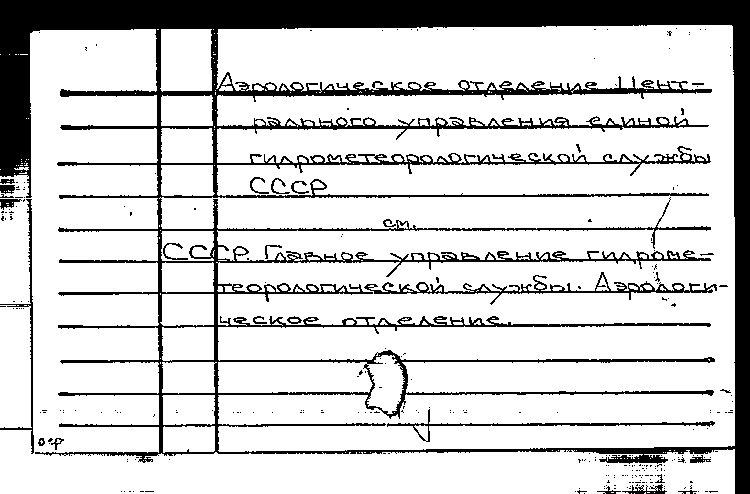 Аэрологическое отделение Цент-
рального управления единой
гидрометеорологической службы
СССР
см.
СССР. Главное управление гидроме-
теорологической службы. Аэрологи-
ческое отделение.